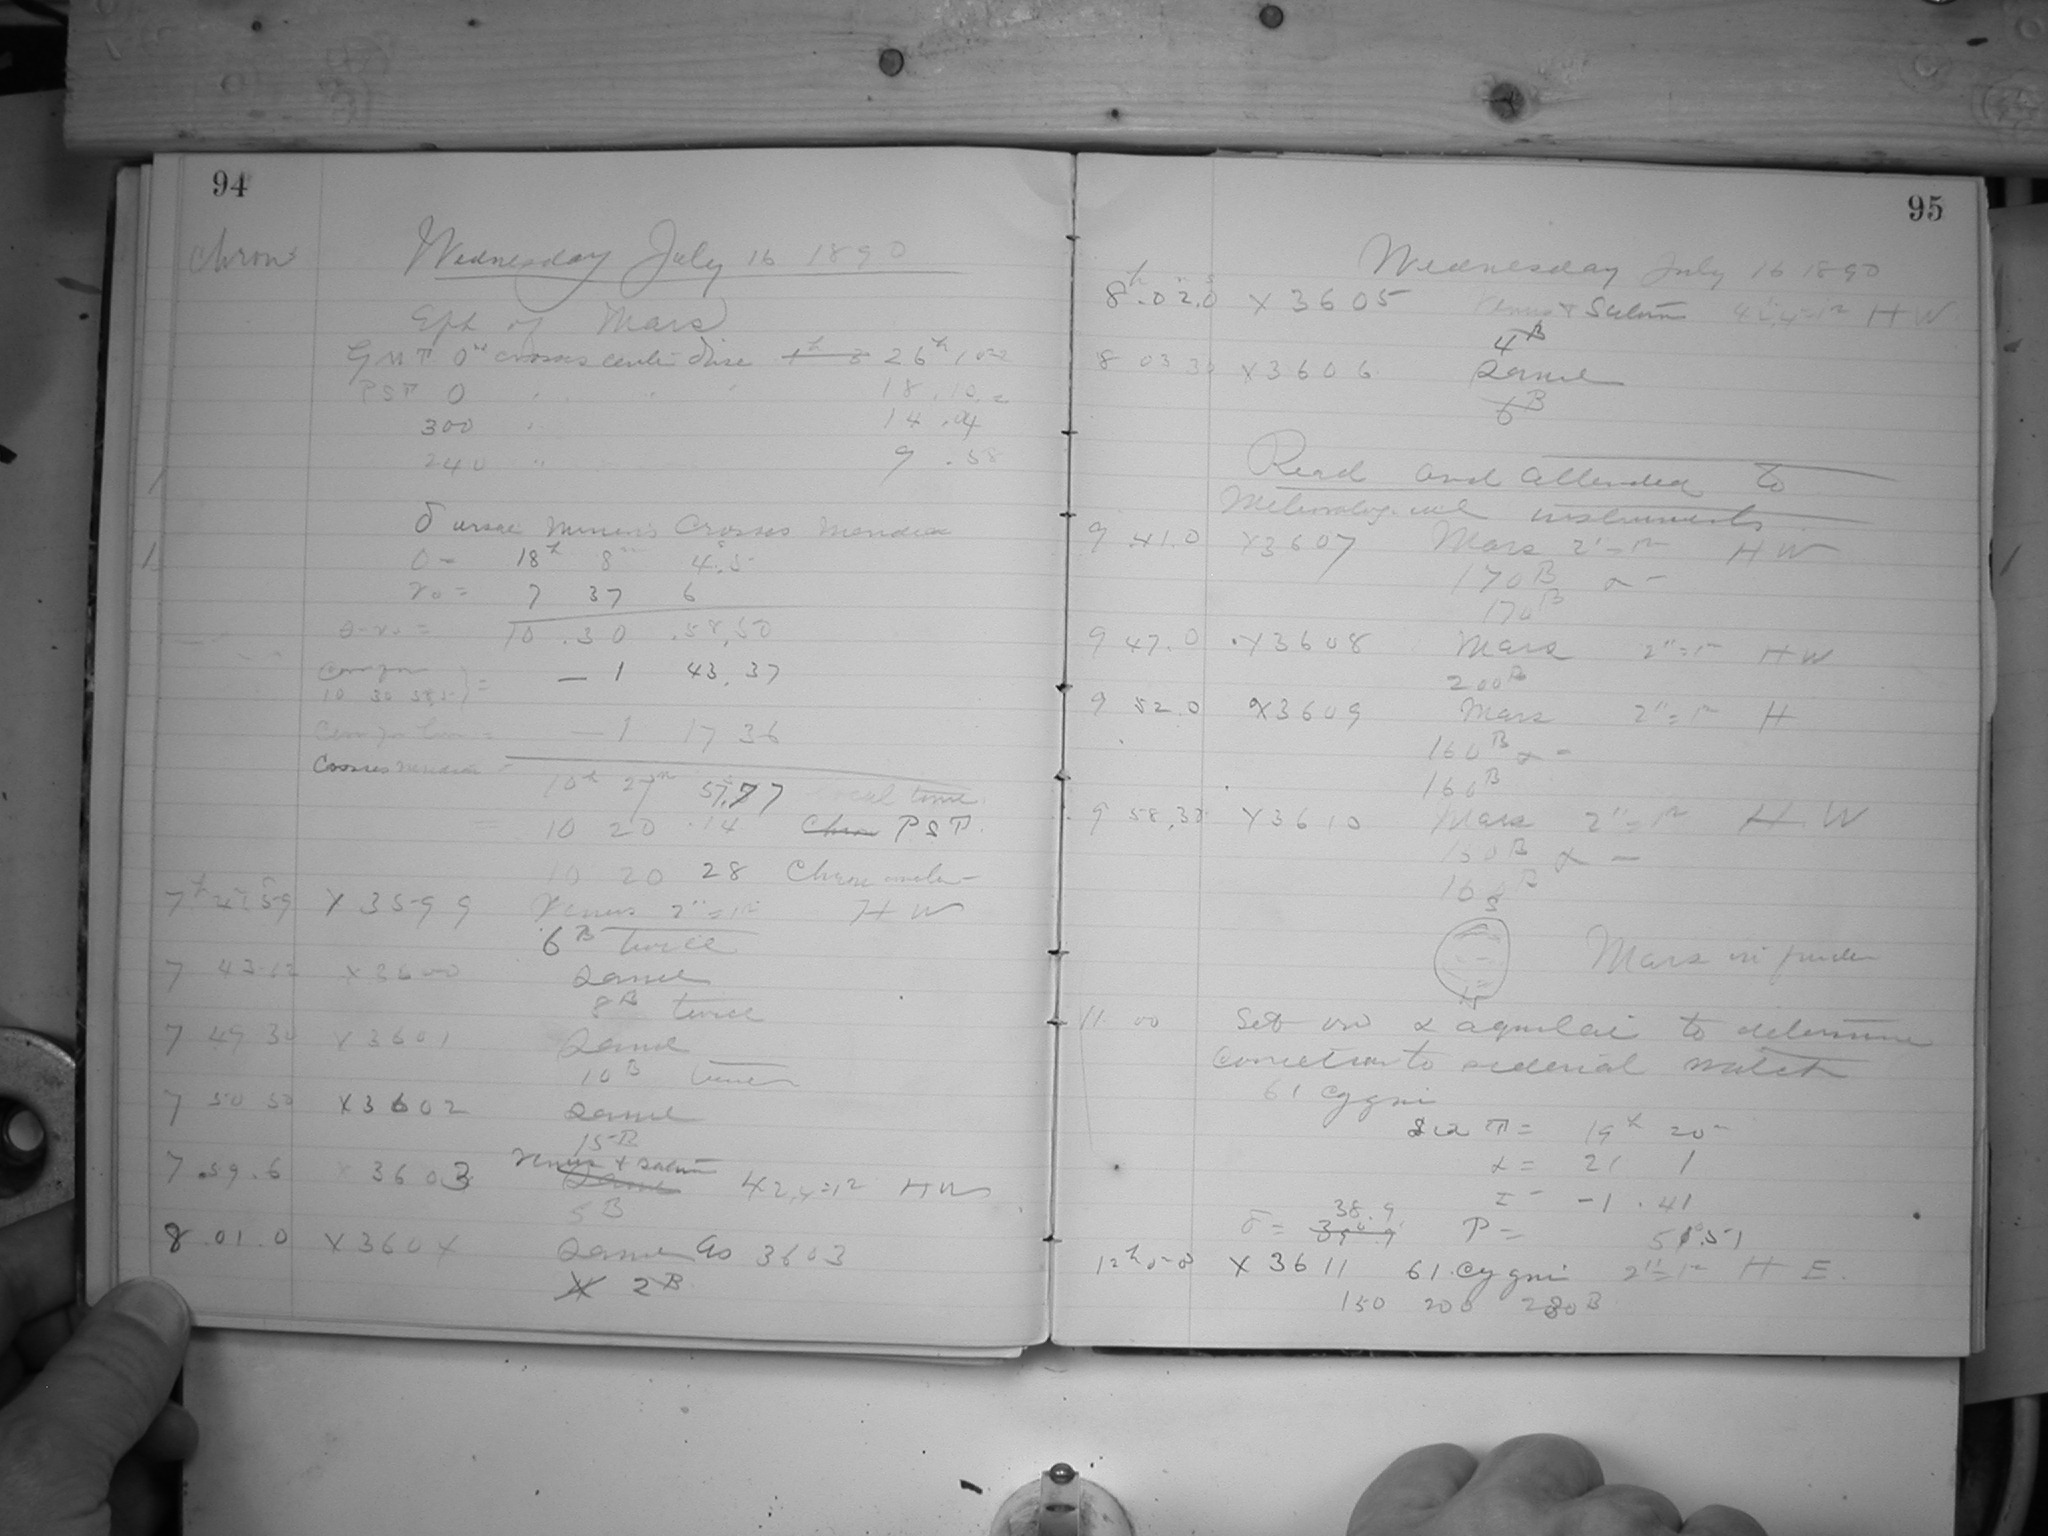 94
Chron
Wednesday July 16 1890
Eph of Mars
G M T 0° crosses center disc 26h
PST 0 " " " 18.10.2
300 " 14.04
240 " 9.58
δ Ursae Minoris Crosses Meridian
θ = 18h 8m 4.5s
γo = 7 37 6
θ-γo = 10.30.58,50
10 30 58,5 } = - 1 43.37
= - 1 17 36
Crosses Meridian = 10h 27m 57.77s local time
= 10 20.14 Chron PST.
10 20 28 Chronometer
X 3599 Venus 2"=1" H W
6B twice
7 43.12 X3600 Same
8B twice
7 49 30 X3601 Same
10B twice
7 50 50 X3602 Same
15B
7.59.6 X3603 Venus & Saturn Same 42,4=12 H W
5B
8.01.0 X3604 Same as 3603
2B
95
Wednesday July 16 1890
8h.02.0 X3605 Venus & Saturn H W
4B
8 03 30 X3606 Same
6B
Read and attended to
Meteorological instruments
9 41.0 X3607 Mars 2"=1" H W
170B α -
170B
9 47.0 X3608 Mars 2"=1" H W
200B
9 52.0 X3609 Mars 2"=1" H
160B α -
160B
9 58.30 X3610 Mars 2"=1" H W
150B α -
S
Mars in finder
N
11.00 Set on α Aquilae to determine
Correction to sidereal watch
61 Cygni
Sid T = 19h 20m
α = 21 1
I = -1.41
38.9
δ = 39°.9' P =
X3611 61 Cygni 2"=1" H E.
150 200 280B